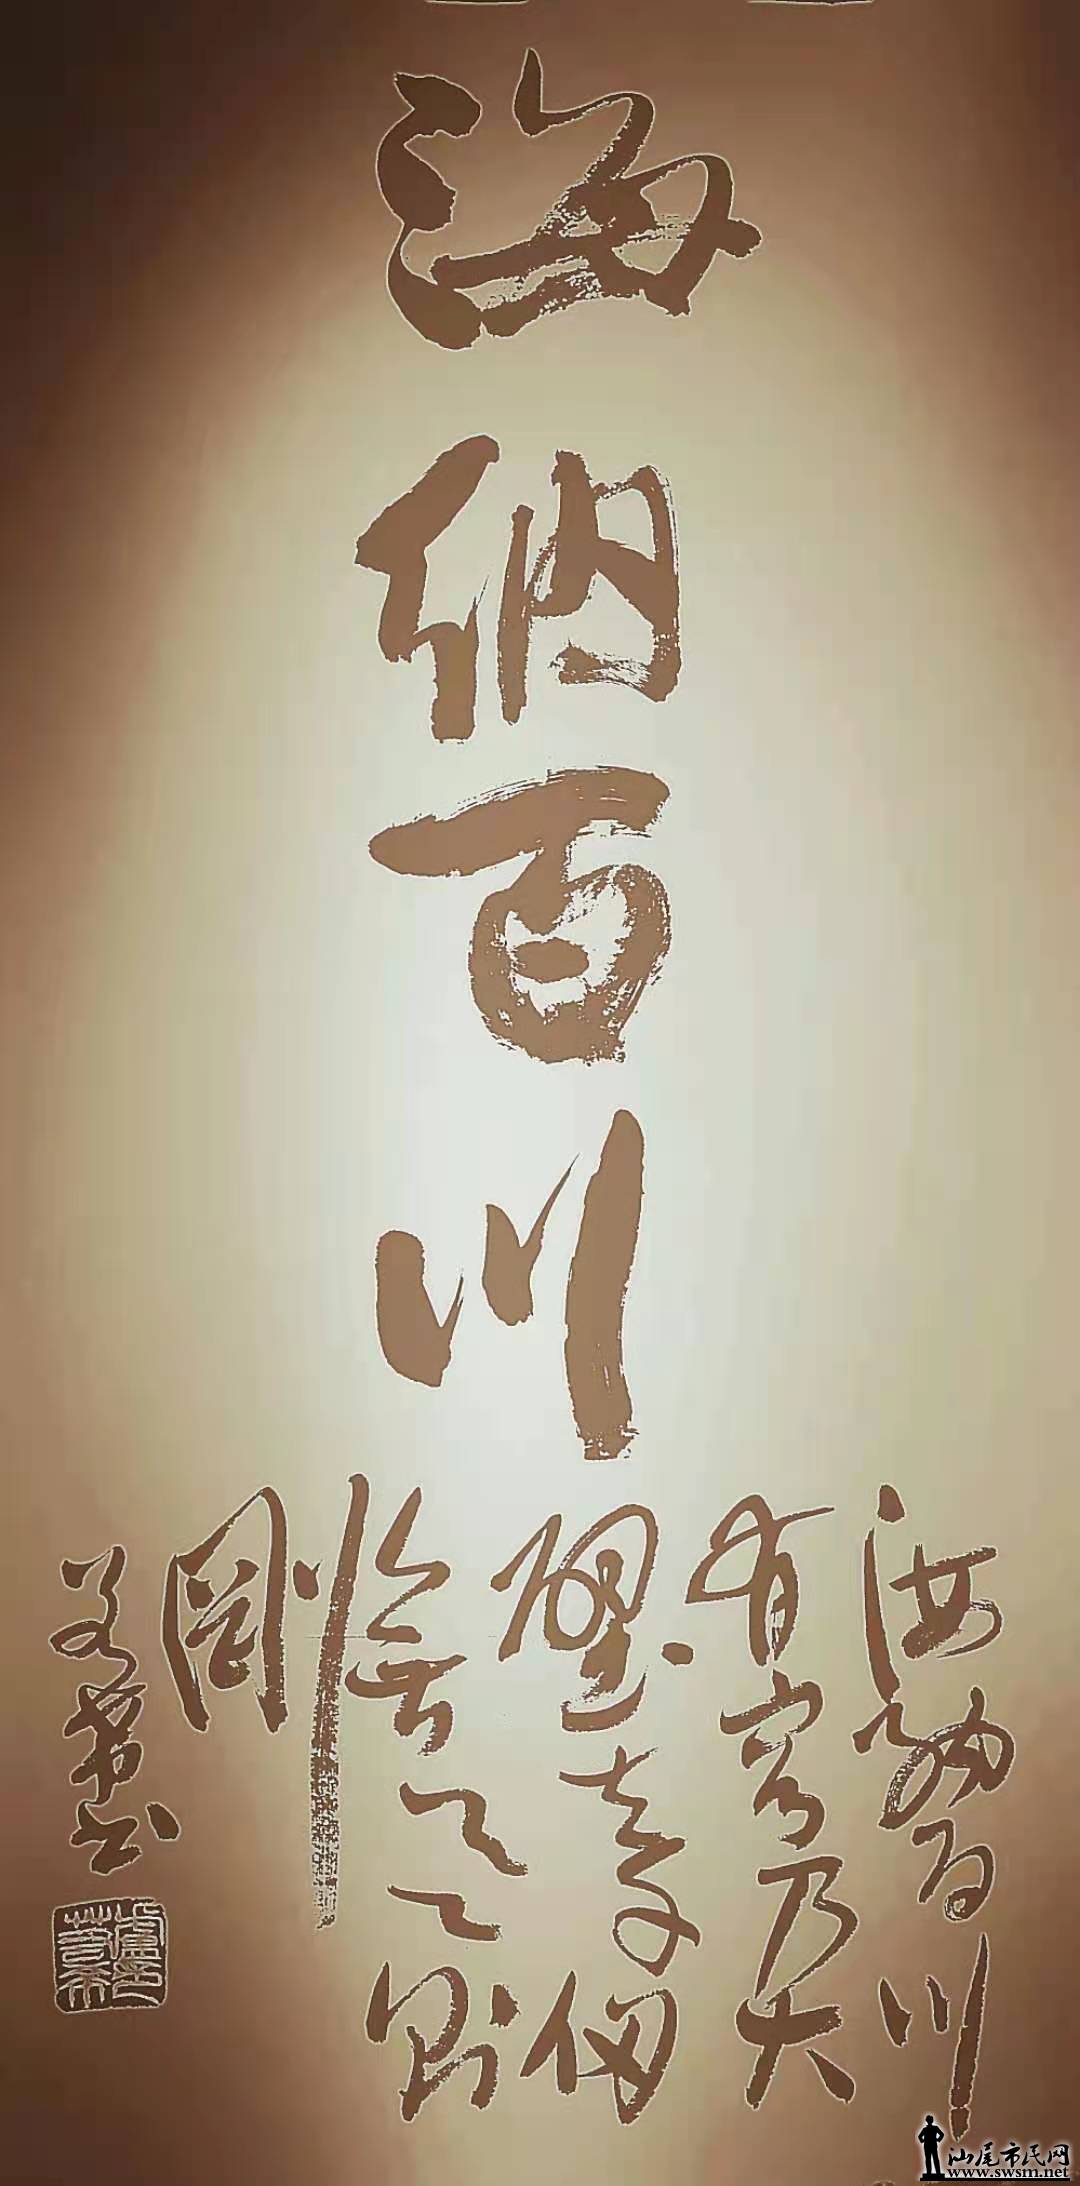 海納百川
海納百川
有容乃大
壁立千仞
無欲則
剛
汕尾市民网
www.swsm.net